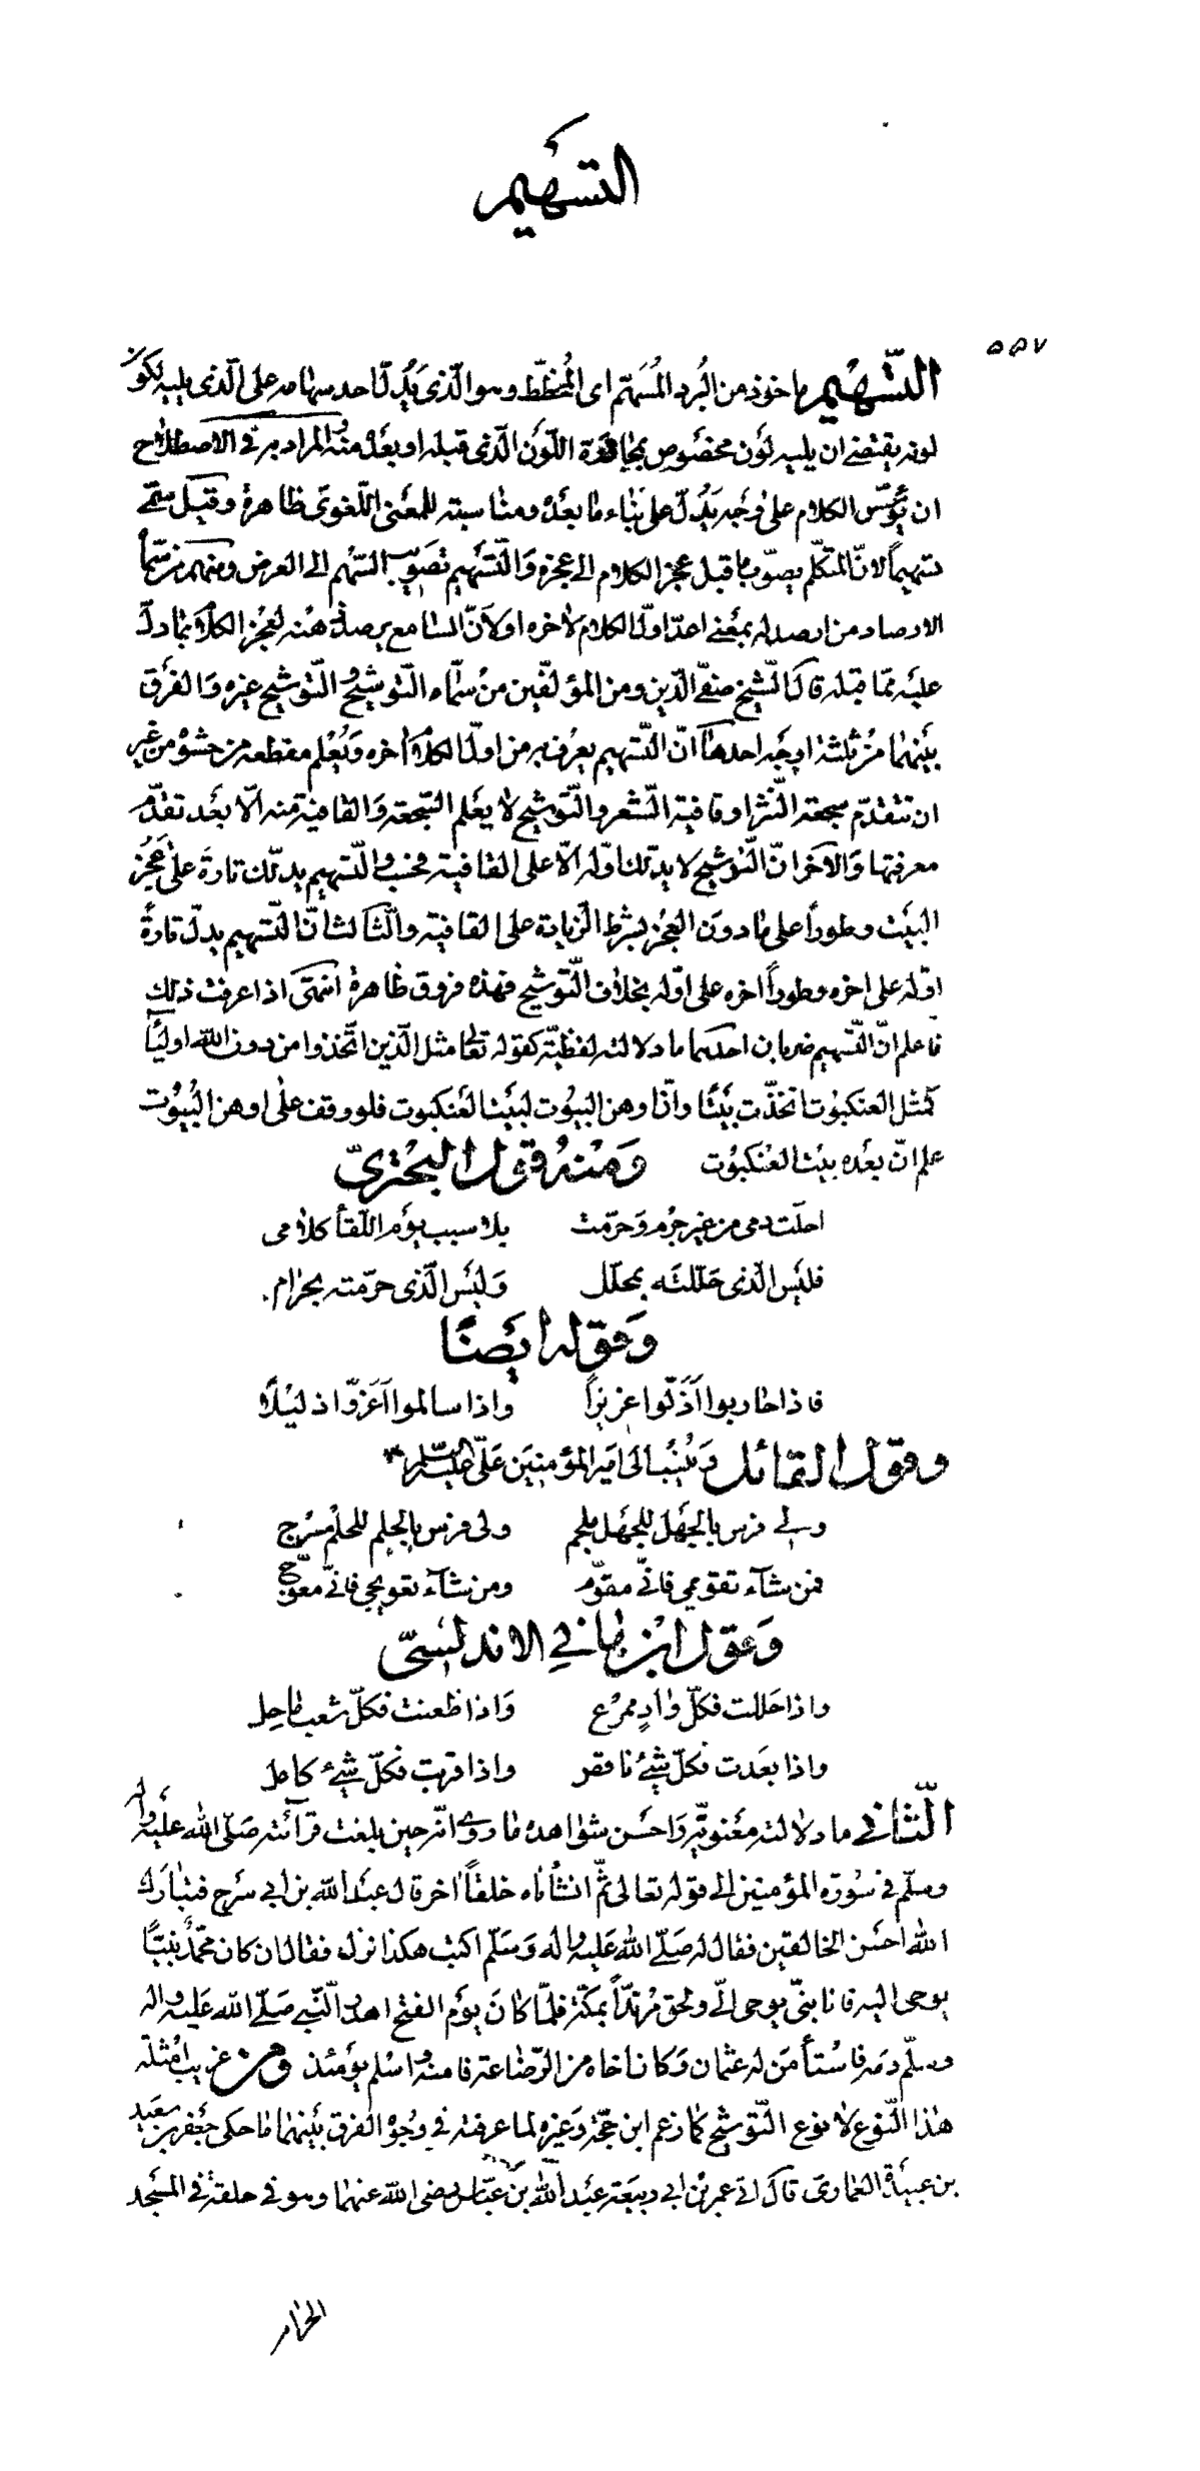 التسهيم
٥٥٧
التّسهيم ماخوذ من البُرد المُسَهّم اى المُخطّط وهو الّذى يَدُلّ احد سهامه على الّذى يليه لكون
لونه يقتضى ان يليه لَون مخصُوص بمجاورة اللّون الّذى قبله او بعَده منه والمراد به فى الاصطلاح
ان يؤسّس الكلام على وَجه يَدُلّ على بناء ما بعَده ومناسبته للمعنى اللّغوىّ ظاهرة وقيل سمّى
تسهيماً لانّ المتكلّم يصوّب ما قبل عجز الكلام الى عجزه وَالتّسَهيم تَصويب السّهم الى الغرض ومنهم من سمّاه
الارصاد من ارصد له بمعَنى اعدّ اوّل الكلام لاخره او لاَنّ السّامع يرصد ذهنه لعَجُز الكلاَم بما دلّ
عليَه ممّا قبله قال الشّيخ صفىّ الدّين ومن المؤلّفين منُ سمّاه التّوشيح والتّوشيح غيره وَالفرَق
بيَنهما مُن ثلثة اوجه احدها انّ التّسهيم يعرف به من اوّل الكلام اخره وَيُعْلم مقطعه من حشوه من غير
ان تتقدّم سجعة النّثر او قافية الشّعر والتّوشيح لا يعَلم السّجعة وَالقافية منه الّا بعَد تقدّم
معرفتها وَالآخر انّ التّوشيح لا يدلّك اوّله الّا على القافية فحسب والتّسهيم يدلّك تارة على عَجُز
البيَت وطوراً على ما دون العَجُز بشرط الزيادة على القافية والثّالث انّ التّسهيم يدلّ تارةً
اوّله على اخره وطوراً اخره على اوّله بخلاف التّوشيح فهذه فروق ظاهرة انتهى اذا عرفت ذلك
فاعلم انّ التّسهيم ضربان احدهما ما دلالته لفظيّة كقوله تعالى مثل الّذين اتّخذوا من دون اللّه اوليآء
كمثل العنكبوت اتخذّت بيَتًا وانّ اوهن البيُوت لبيَت العَنكبوت فلو وقف على اوهن البُيُوت
علم انّ بعَده بيَت العَنكبوُت وَمنْهُ قول البحُترىّ
احلّت دمى من غير جُرم وَحرّمت بلا سبب يوَم اللّقآ كلامى
فليَس الّذى حَلّلتَه بمحلّل وَليَس الّذى حرّمته بحرام.
وَقوله ايَضًا
فاذا حاربوا اَذَلّوا عزيزاً واذا سالموا اَعَزّوا ذليْلًا
وقول القائل وَ يُنسَب الى اميَر المؤمنيَن عَلىّ عليه السّلام
ولى فرس بالجَهَل للجَهل ملجم ولى فرس بالحِلم للحلْم مسْرج
فمن شآء تقويمى فانّى مقوّم ومن شآء تعويجى فانّى معوّج
وَقول ابْن هانى الاندلسىّ
واذا حَللت فكلّ وادٍ ممْرع وَاذا ظعنت فكلّ شعب ماحِل
واذا بعَدت فكلّ شَئ ناقص واذا قربت فكلّ شئ كامل
الثّانى ما دلالته معَنويّة وَاحسَن شواهده ما روى انّه حين بلغت قرآئته صَلّى اللّٰه علَيه واله
وسلّم فى سُورة المؤمنين الى قوله تعالى ثمّ انشَأناه خلقاً اخر قال عبَد اللّه بن ابى سَرح فتبارَك
اللّه احسَن الخالقين فقال له صَلّى اللّه عَليه واله وَسَلّم اكتب هكذا نزل فقال ان كان محّمدٌ نبيًّا
يوحى اليه فانا نبىّ يوحى الىّ ولحق مُرتدّاً بمكّة فلمّا كانَ يوَم الفتح اهدر النّبى صَلّى اللّه عَليه واله
وسلّم دمه فاسْتأمَن له عثمان وَكان اخاه من الرّضاعة فامنه واسْلم يوَمئذ ومن غريب امْثلة
هٰذا النّوع لا نوع التّوشيح كما زعم ابن حجّة وَغيره لما عرفت فى وُجوْه الفرق بيَنهما ما حكى جعَفر بن سعَيد
بن عبيدة العمارى قالَ اتى عمر بْن ابى ربيعَة عبَد اللّه بن عبّاس رضى اللّه عنهما وهو فى حلقة فى المسَجد
الحرام